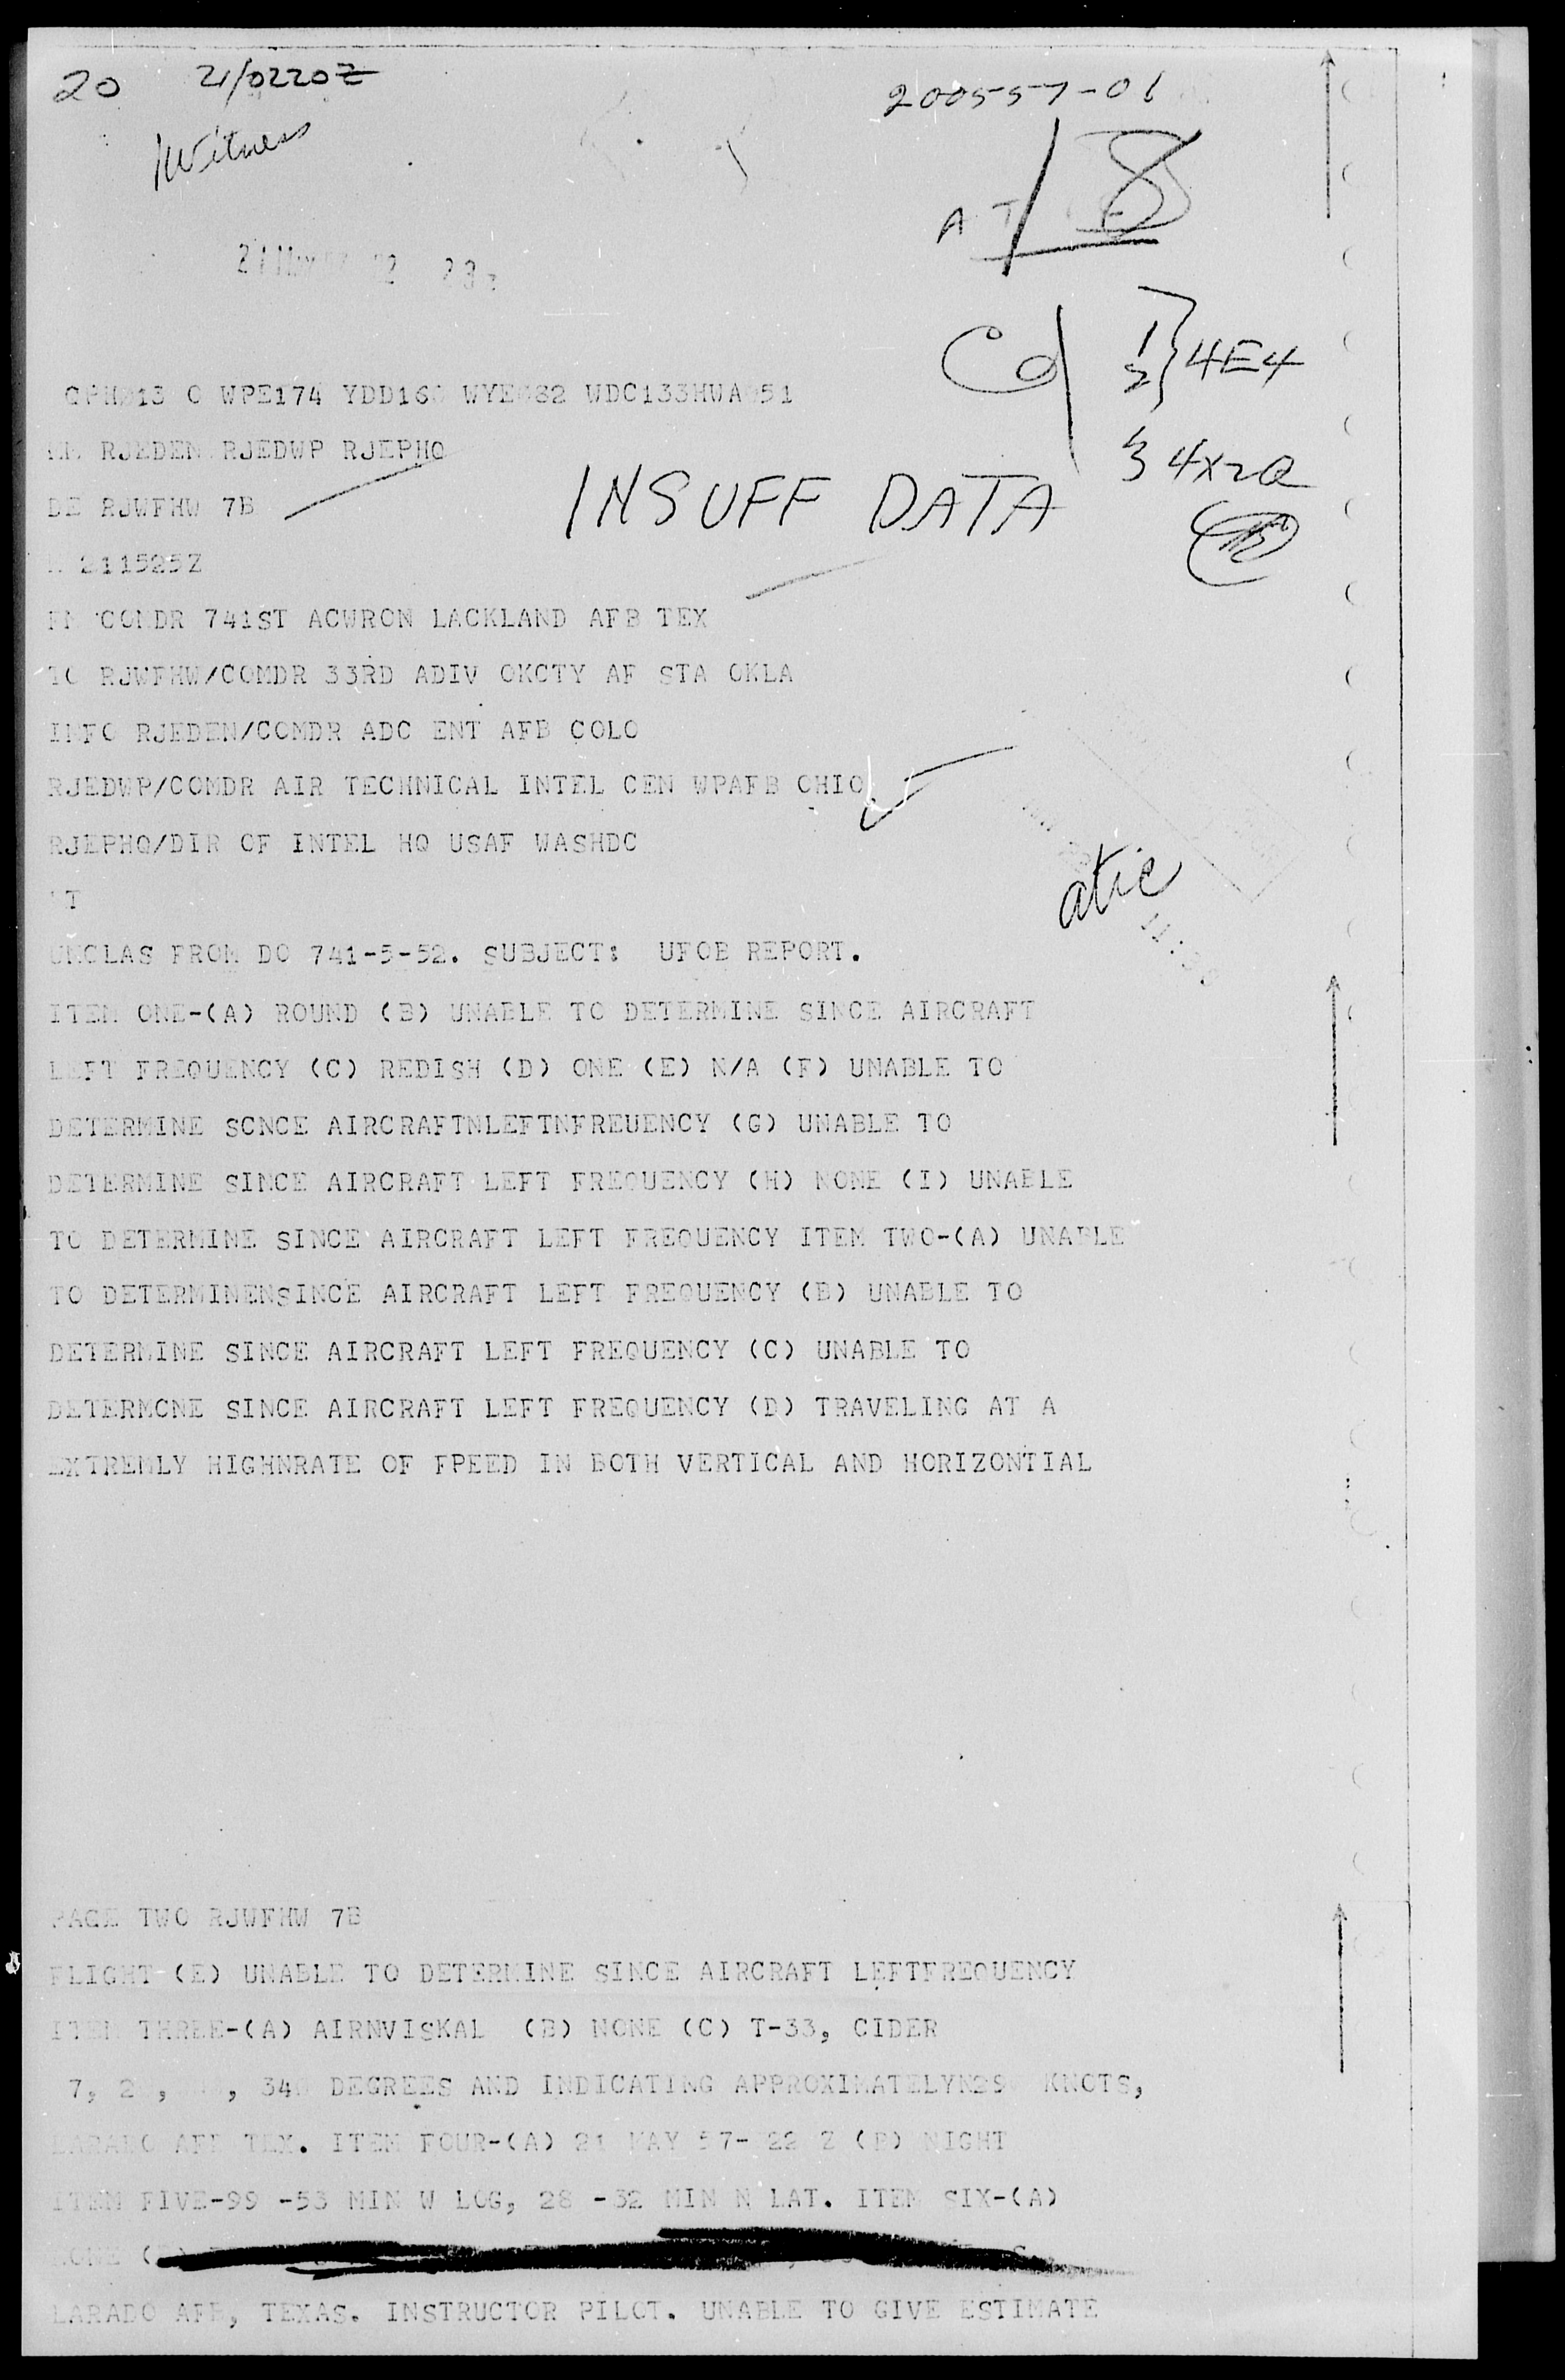 20 21/0220Z 200557-01
Witness
A T 8
Cd 1 } 4E4
2
3 4X2Q
13 C WPE174 YDD16 WYE 82 WDC133HWA 51
RJEDEN RJEDWP RJEPHQ
DE RJWFHW 7B
INSUFF DATA
211525Z
FM COMDR 741ST ACWRON LACKLAND AFB TEX
TO RJWFHW/COMDR 33RD ADIV OKCTY AF STA OKLA
INFO RJEDEN/COMDR ADC ENT AFB COLO
RJEDWP/COMDR AIR TECHNICAL INTEL CEN WPAFB OHIO
RJEPHQ/DIR OF INTEL HQ USAF WASHDC
atic
T
UNCLAS FROM DO 741-5-52. SUBJECT: UFOB REPORT.
ITEM ONE-(A) ROUND (B) UNABLE TO DETERMINE SINCE AIRCRAFT
LEFT FREQUENCY (C) REDISH (D) ONE (E) N/A (F) UNABLE TO
DETERMINE SCNCE AIRCRAFTNLEFTNFREUENCY (G) UNABLE TO
DETERMINE SINCE AIRCRAFT LEFT FREQUENCY (H) NONE (I) UNABLE
TO DETERMINE SINCE AIRCRAFT LEFT FREQUENCY ITEM TWO-(A) UNABLE
TO DETERMINENSINCE AIRCRAFT LEFT FREQUENCY (B) UNABLE TO
DETERMINE SINCE AIRCRAFT LEFT FREQUENCY (C) UNABLE TO
DETERMCNE SINCE AIRCRAFT LEFT FREQUENCY (D) TRAVELING AT A
EXTREMLY HIGHNRATE OF FPEED IN BOTH VERTICAL AND HORIZONTIAL
PAGE TWO RJWFHW 7B
FLIGHT (E) UNABLE TO DETERMINE SINCE AIRCRAFT LEFTFREQUENCY
ITEM THREE-(A) AIRNVISKAL (B) NONE (C) T-33, CIDER
7, DEGREES AND INDICATING KNOTS,
LARADO AFB TEX. ITEM FOUR-(A) 21 MAY 57- 22 Z (B) NIGHT
ITEM FIVE-99 -53 MIN W LOG, 28 -32 MIN N LAT. ITEM SIX-(A)
NONE
LARADO AFB, TEXAS. INSTRUCTOR PILOT. UNABLE TO GIVE ESTIMATE